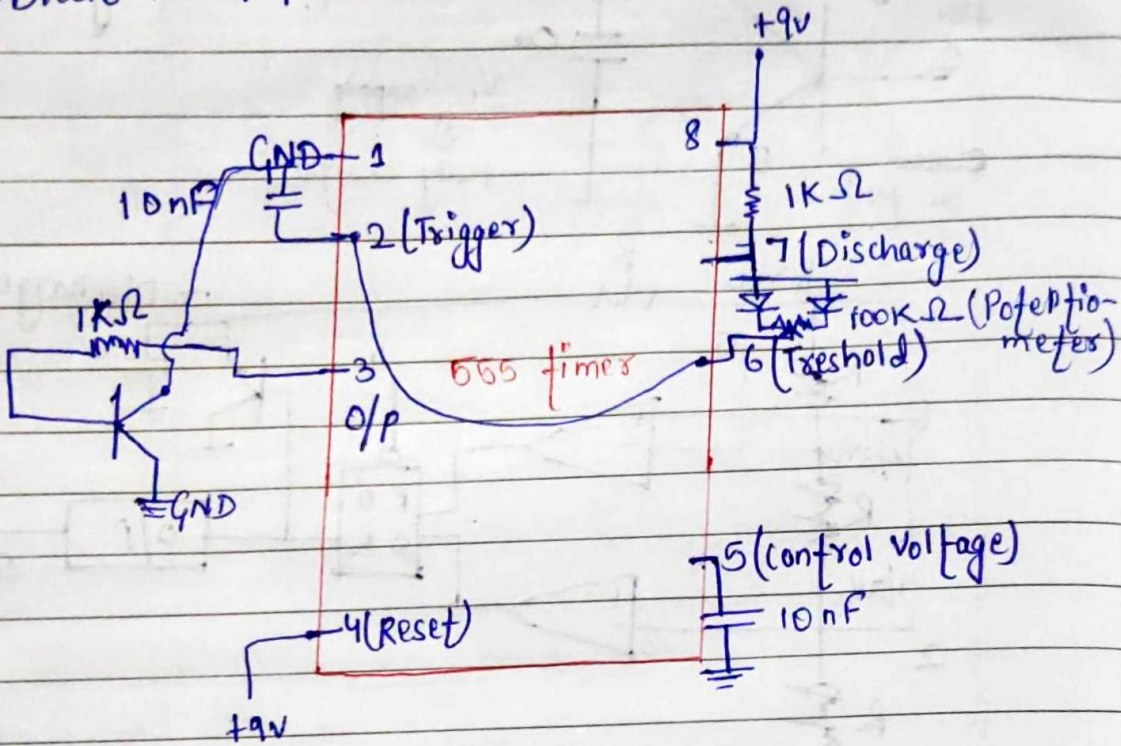 +9v
GND 1
8
10nF
1KΩ
2 (Trigger)
7 (Discharge)
1KΩ
100KΩ (Poteptio-
meter)
3
555 timer
6 (Treshold)
O/P
GND
5 (Control Voltage)
10nF
4 (Reset)
+9v